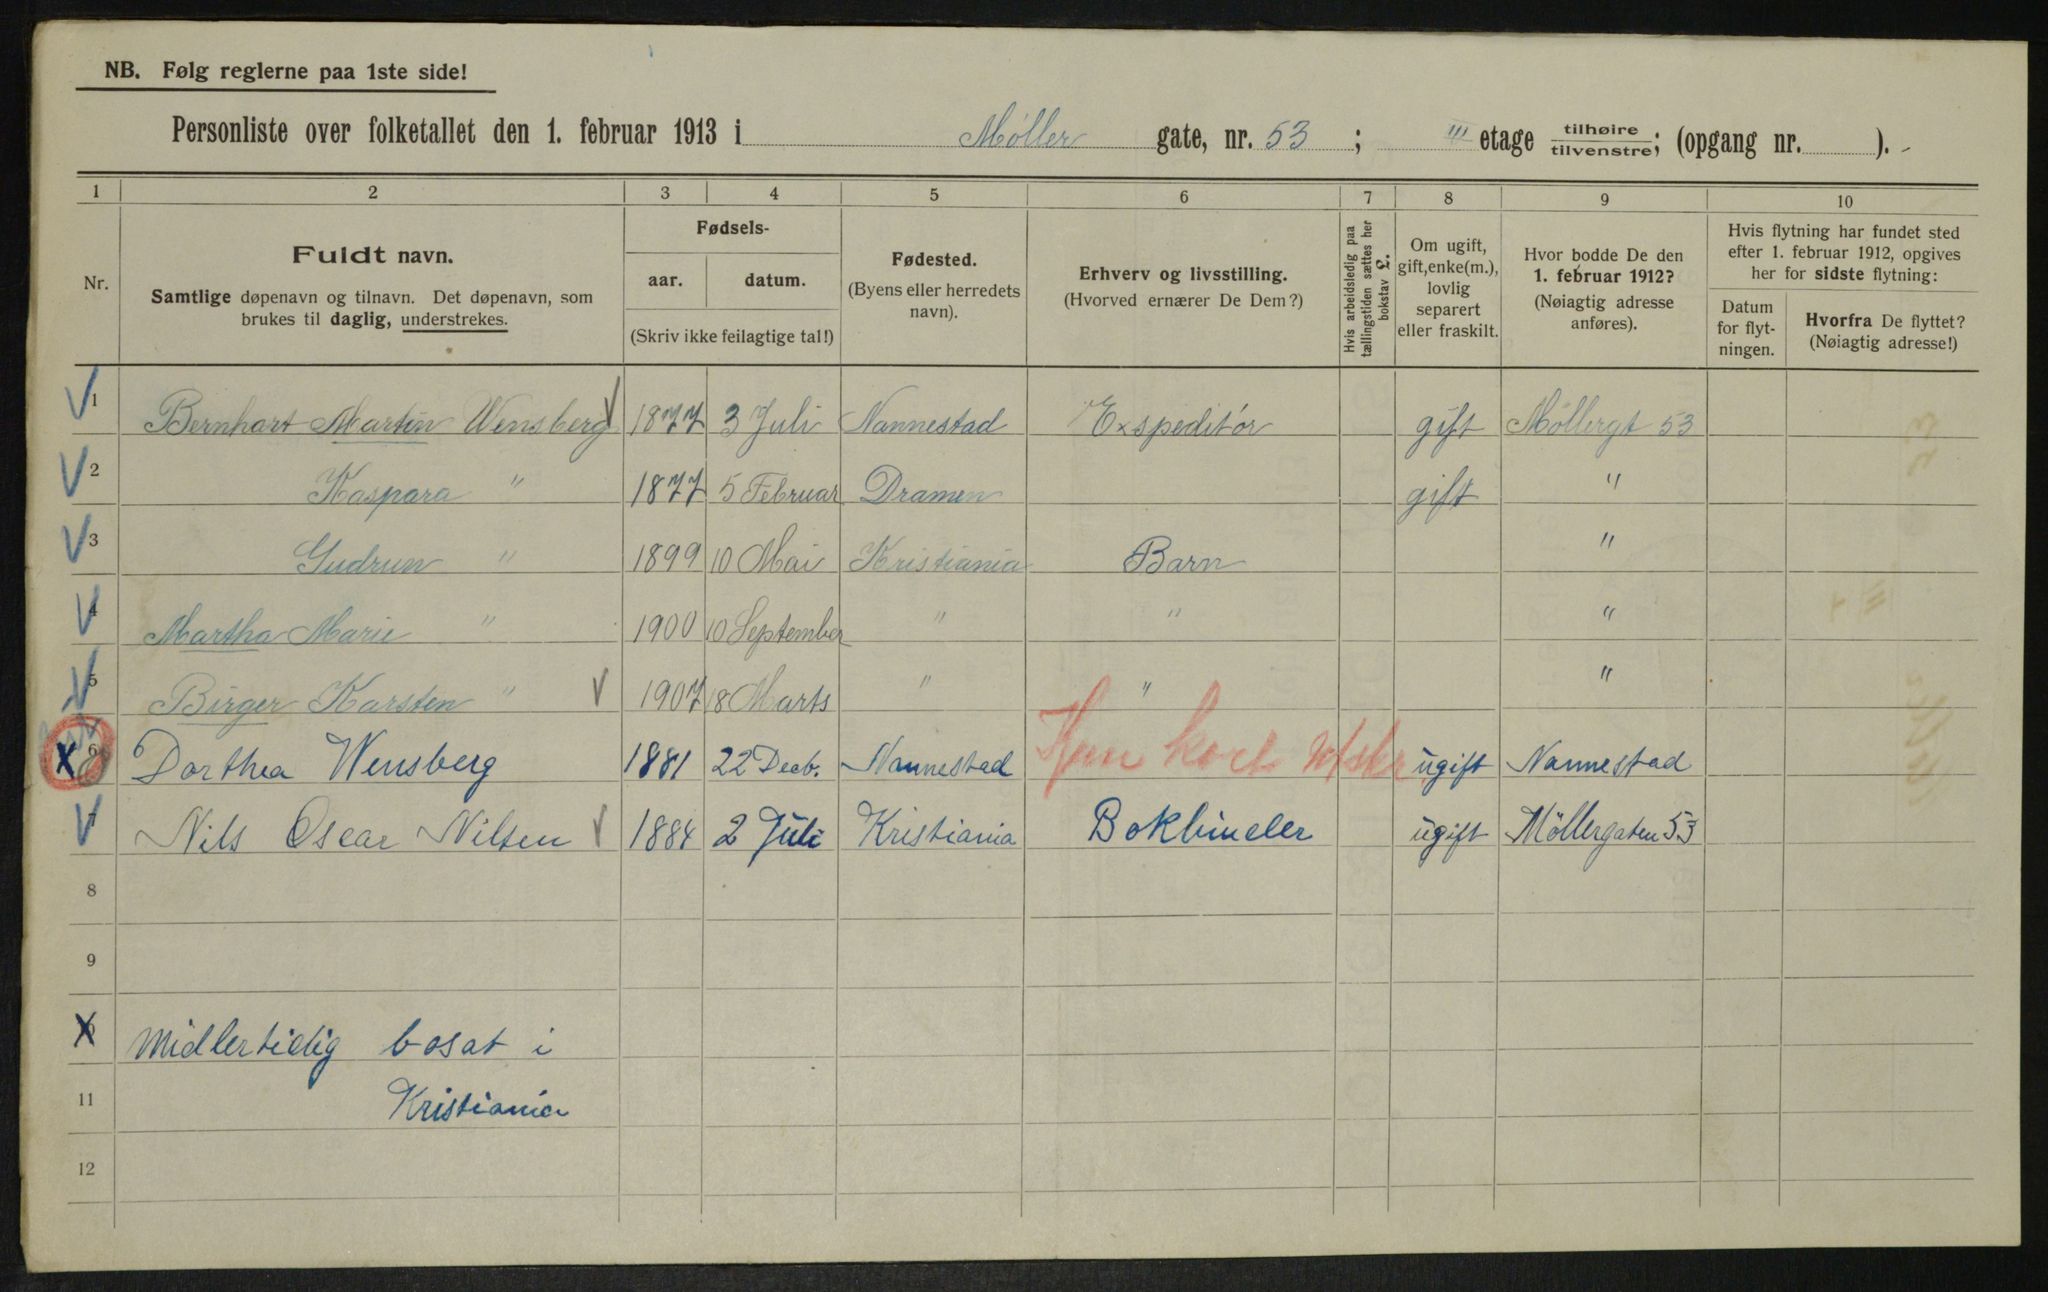 NB. Følg reglerne paa 1ste side!
Personliste over folketallet den 1. februar 1913 i Møller gate, nr. 53 ; III etage tilhøire tilvenstre; (opgang nr. ).
1 2 3 4 5 6 7 8 9 10
Nr.
Fuldt navn.
Samtlige døpenavn og tilnavn. Det døpenavn, som
brukes til daglig, understrekes.
Fødsels-
aar. datum.
(Skriv ikke feilagtige tal!)
Fødested.
(Byens eller herredets
navn).
Erhverv og livsstilling.
(Hvorved ernærer De Dem?)
Hvis arbeidsledig paa
tællingstiden sættes her
bokstav L.
Om ugift,
gift, enke(m.),
lovlig
separert
eller fraskilt.
Hvor bodde De den
1. februar 1912?
(Nøiagtig adresse
anføres).
Hvis flytning har fundet sted
efter 1. februar 1912, opgives
her for sidste flytning:
Datum
for flyt-
ningen.
Hvorfra De flyttet?
(Nøiagtig adresse!)
1 Bernhart Martin Wensberg 1877 3 Juli Nannestad Expeditør gift Möllergt 53
2 Kaspara " 1877 5 Februar Dramen gift "
3 Gudrun " 1899 10 Mai Kristiania Barn "
4 Martha Marie " 1900 10 September " " "
5 Birger Karsten " 1907 18 Marts " " "
X 6 Dorthea Wensberg 1881 22 Decb. Nannestad Kun kort ugift Nannestad
7 Nils Oscar Nilsen 1884 2 Juli Kristiania Bokbinder ugift Möllergaten 53
8
9
X Midlertidig bosat i
11 Kristiania
12